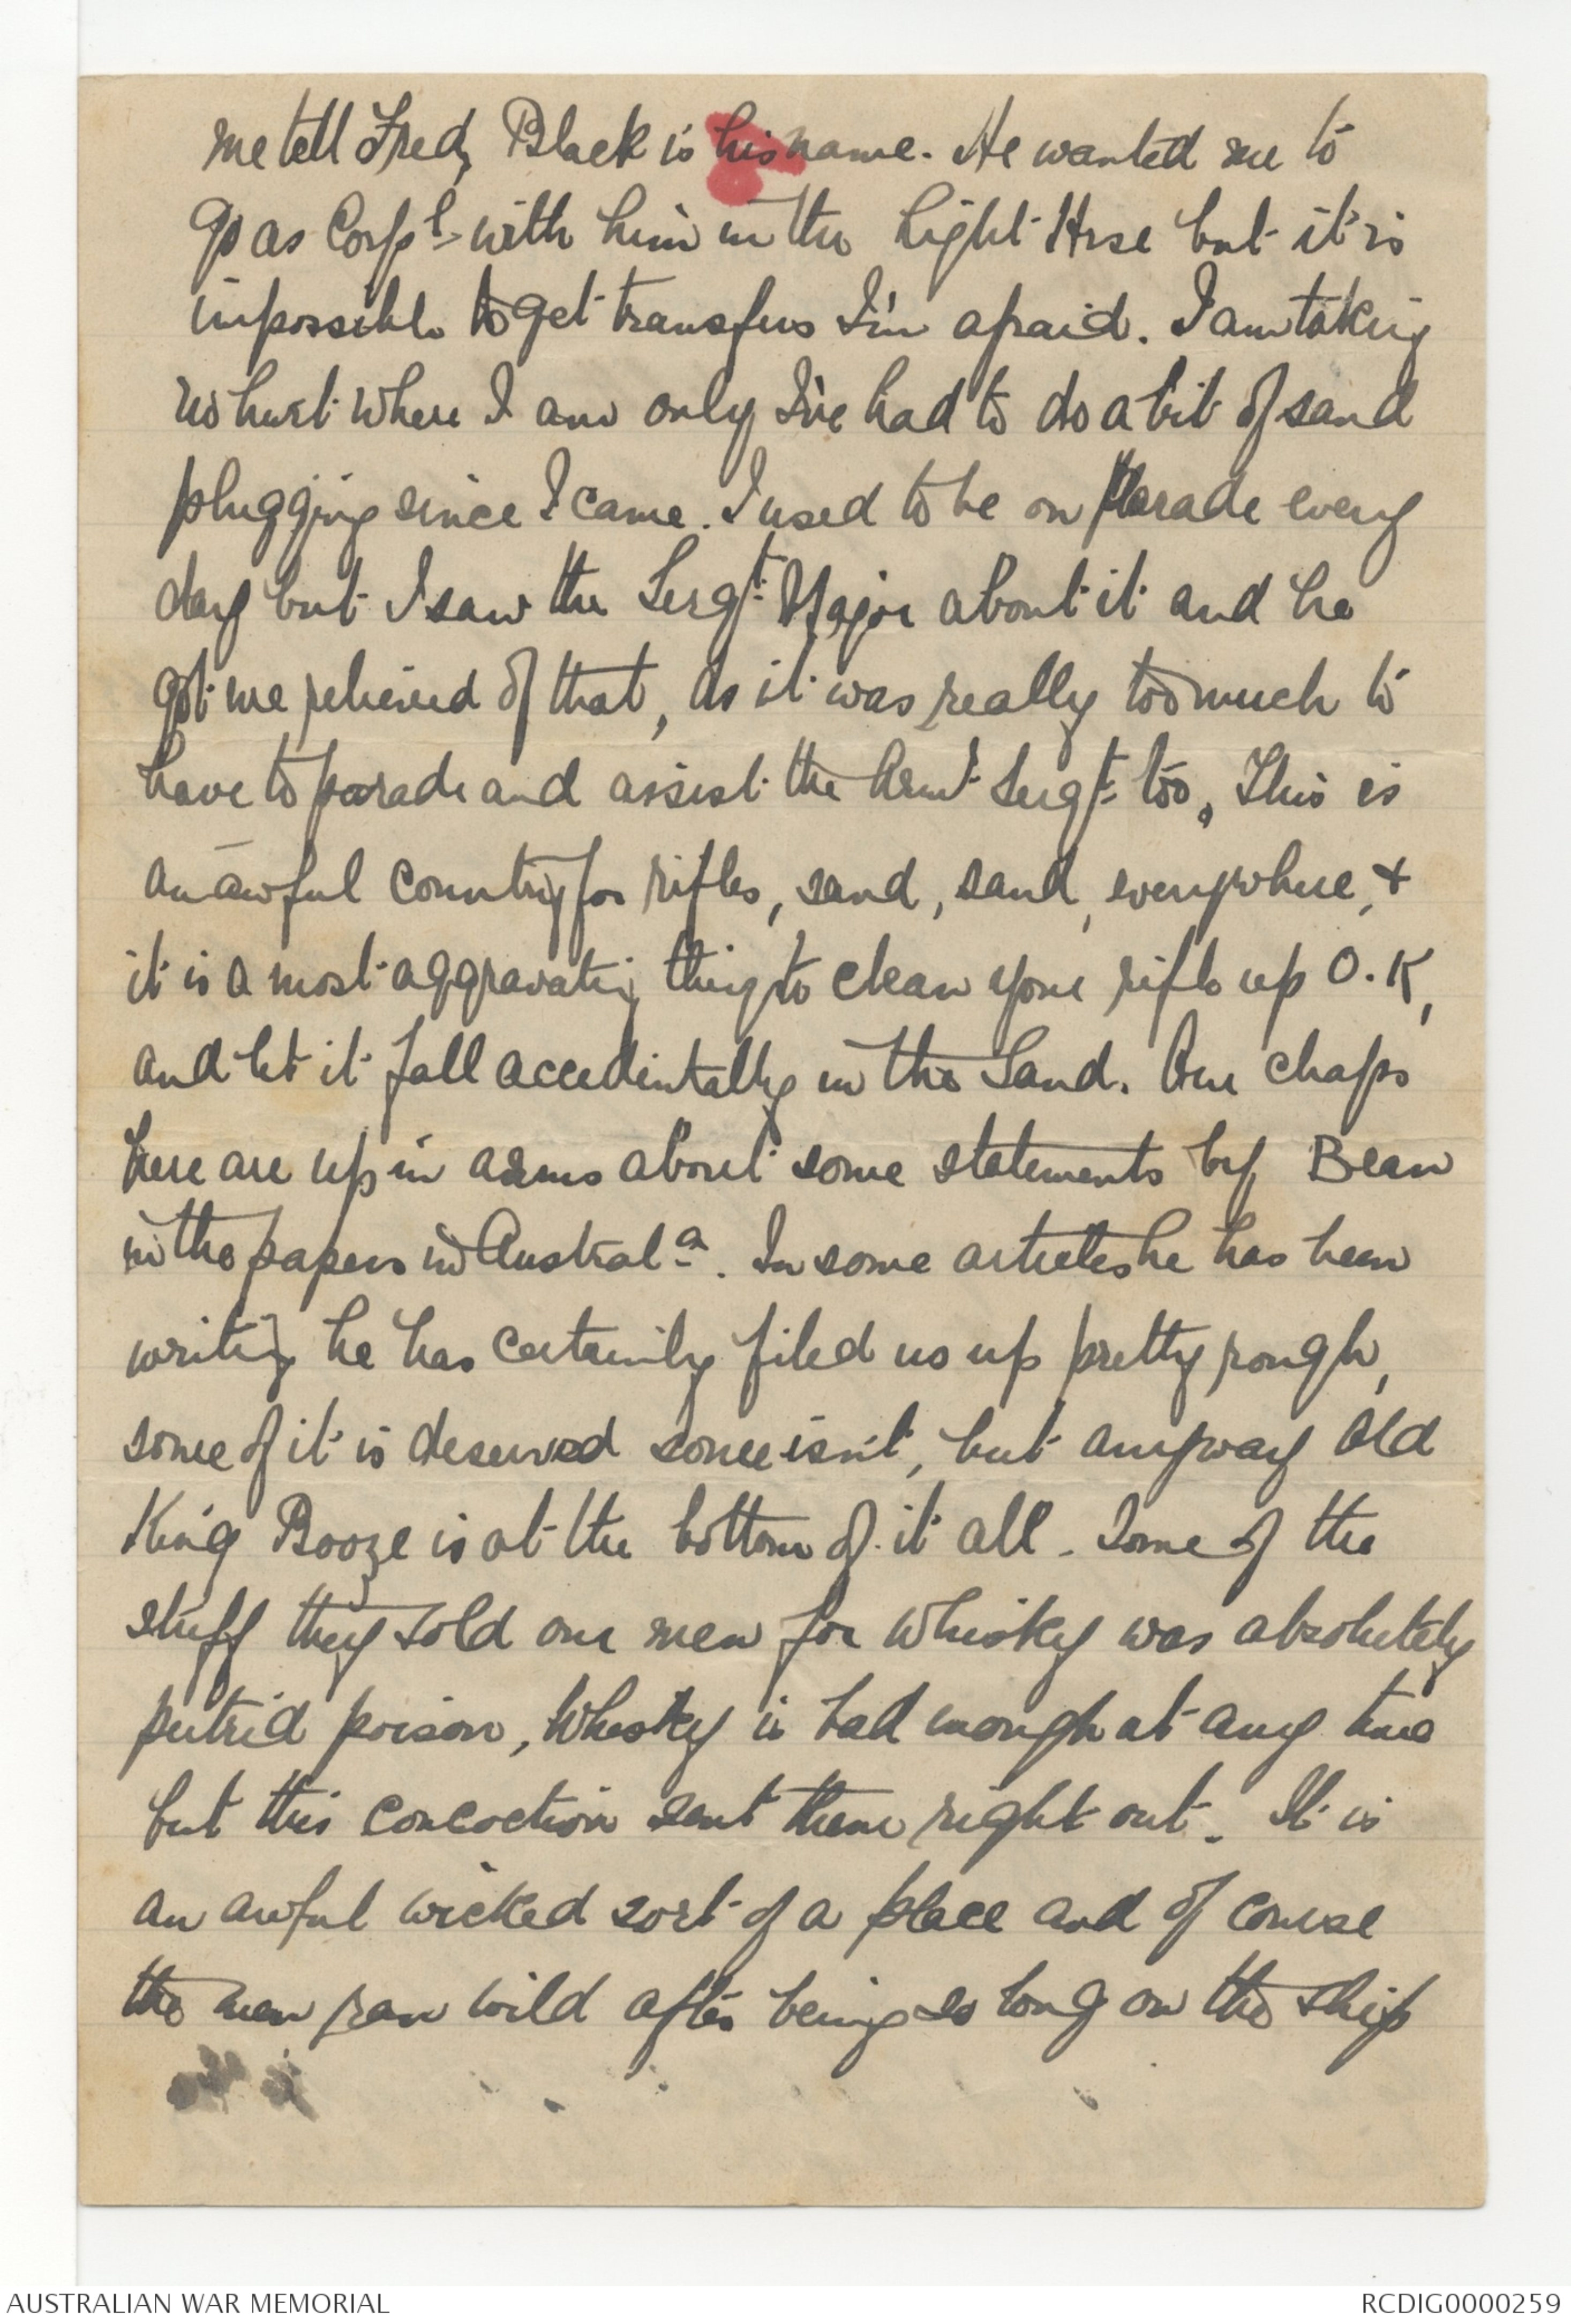 me tell Fred, Black is his name. He wanted me to
go as Corpl- with him in the Light Horse but it is
impossible to get transfers I'm afraid. I am taking
no hurt where I am only I've had to do a bit of sand
plugging since I came. I used to be on Parade every
day but I saw the Sergt. Major about it and he
got me relieved of that, as it was really too much to
have to parade and assist the Armr Sergt. too. This is
an awful country for rifles, sand, sand, everywhere, +
it is a most aggravating thing to clean your rifle up O.K,
and let it fall accedintally in the Sand. Our chaps
here are up in arms about some statements by Bean
in the papers in Australa. In some articles he has been
writing he has certainly filed us up pretty rough,
some of it is deserved some isn't, but anyway Old
King Booze is at the bottom of it all. Some of the
stuff they sold our men for whisky was absolutely
putrid poison, Whisky is bad enough at any time
but this concoction sent them right out. It is
an awful wicked sort of a place and of course
the men ran wild after being so long on the ship
AUSTRALIAN WAR MEMORIAL
RCDIG0000259